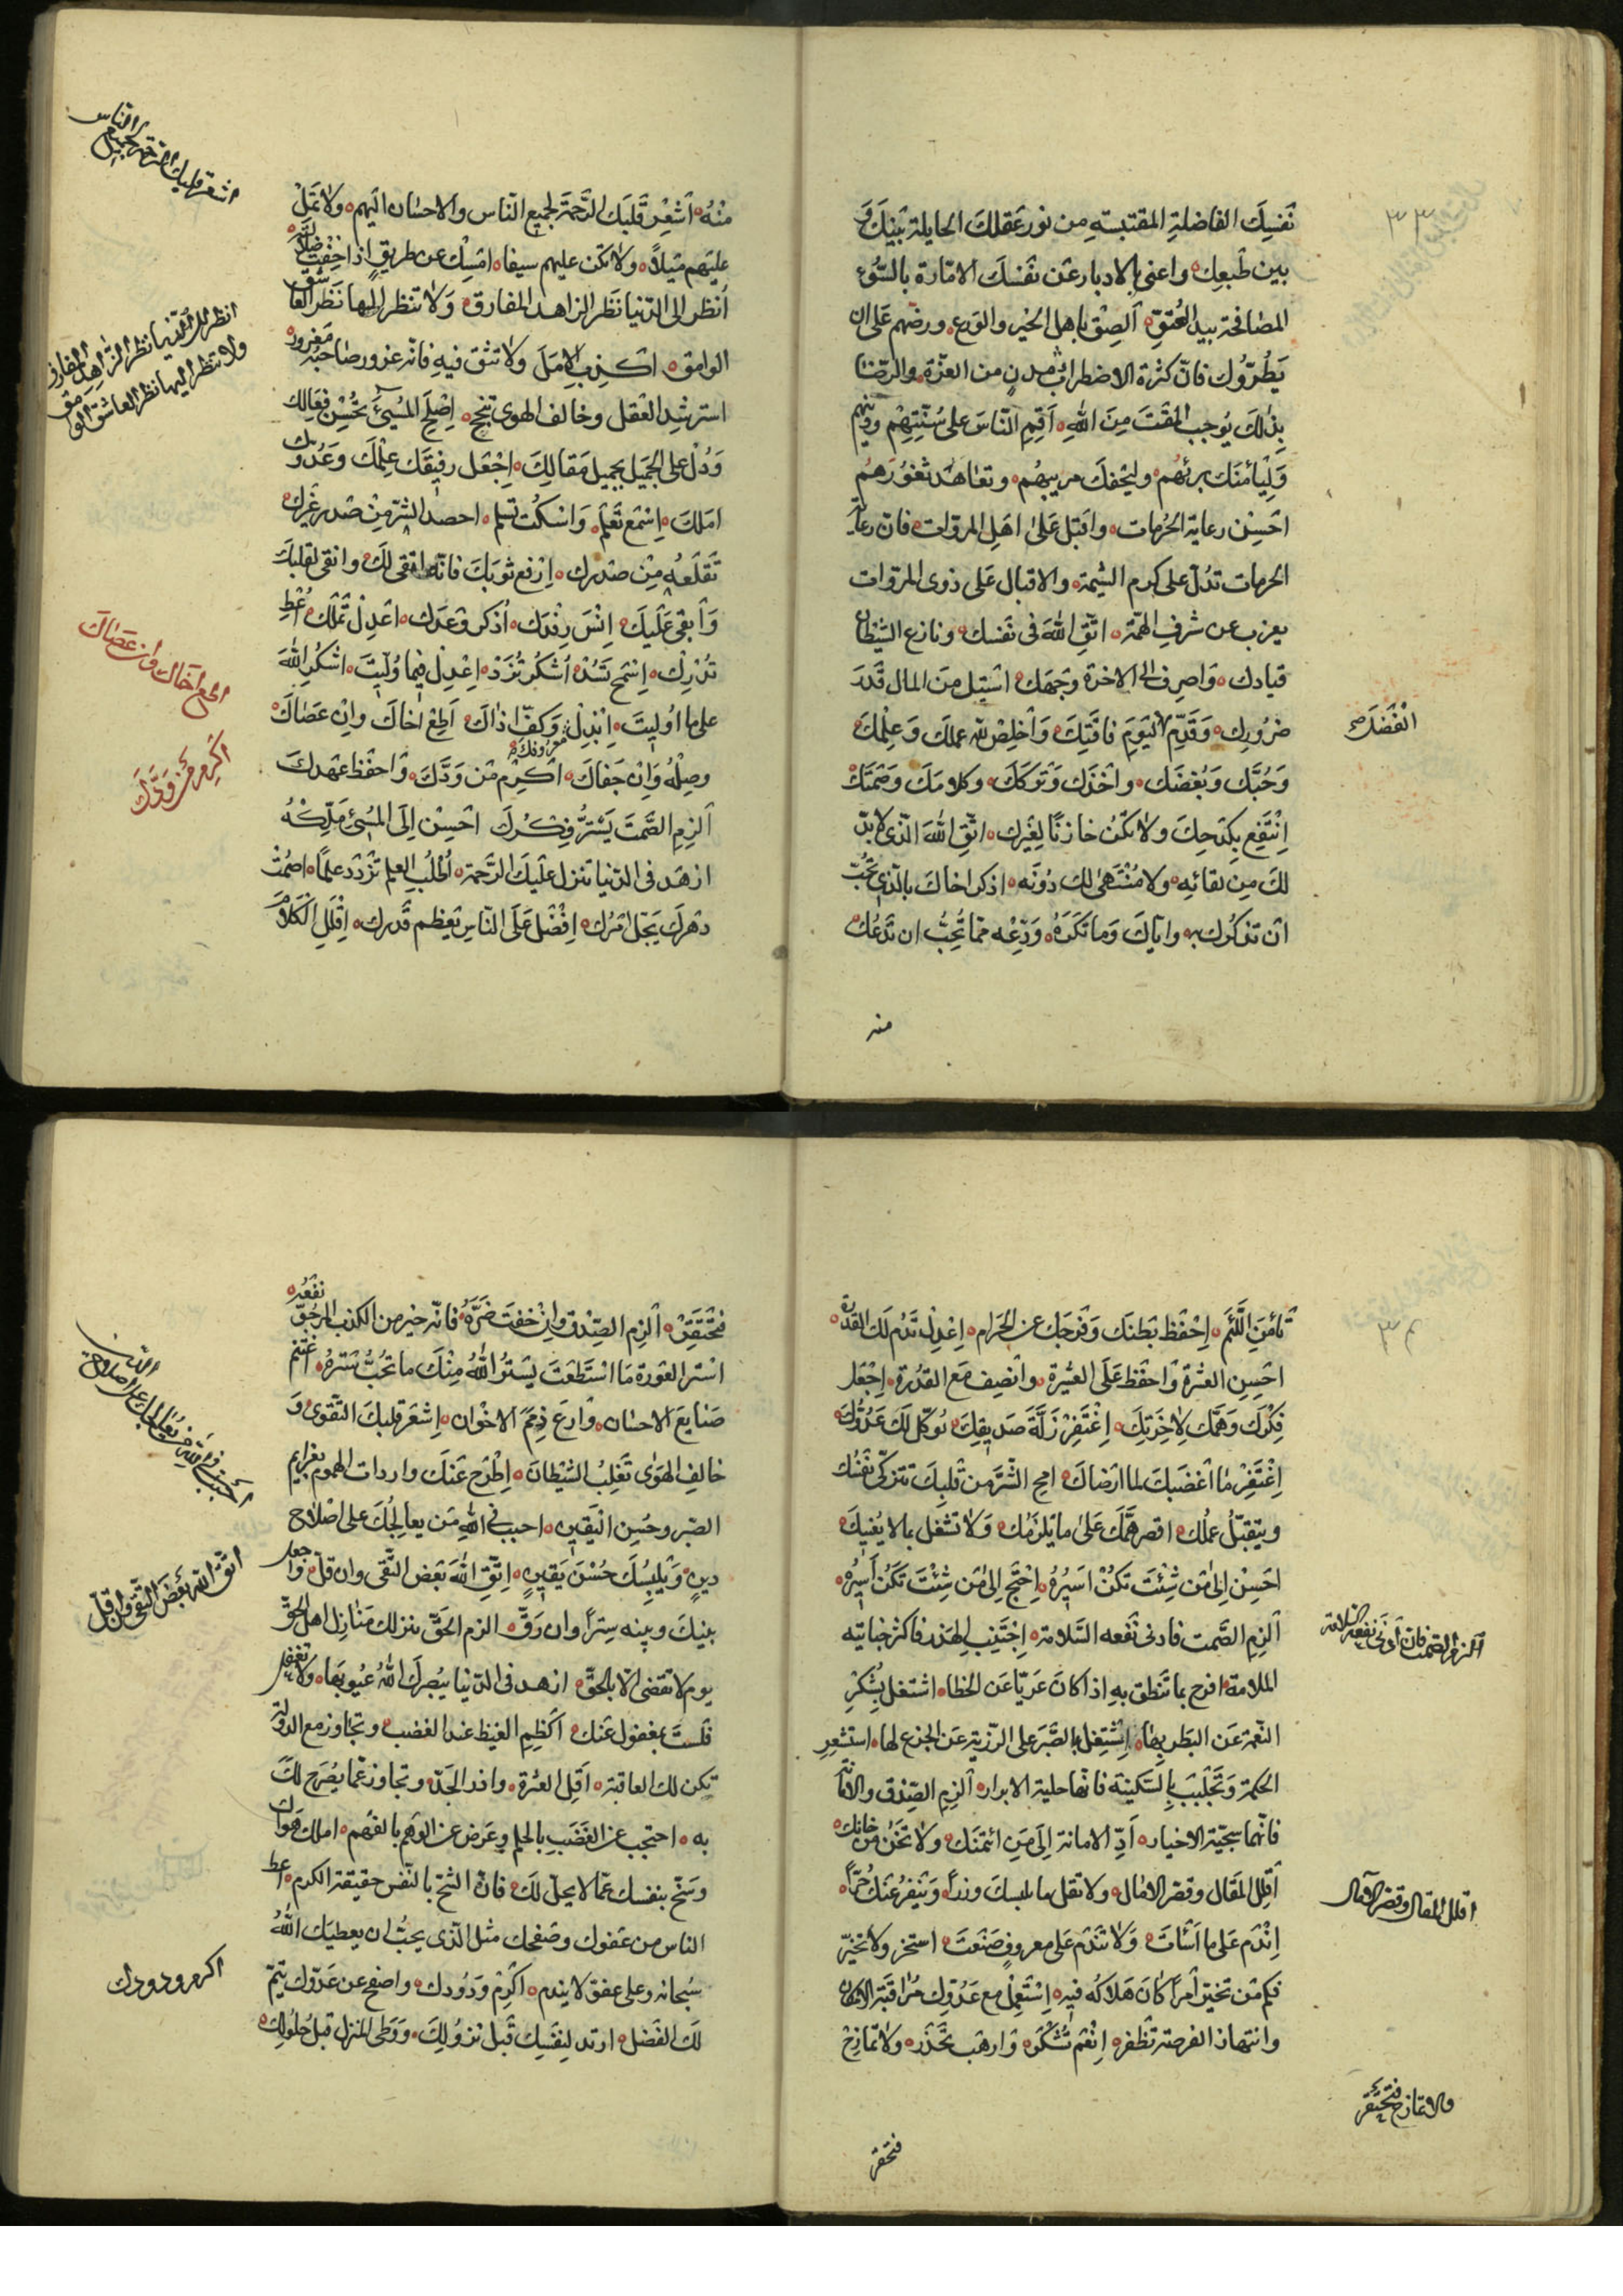 نَفسِكَ الفاضلةِ المقتبسةِ من نور عَقلكَ الحايلة بَينَكَ وَ
بين طَبعِكَ واعني بالادبار عَن نَفسَكَ الامّارة بالسّوُء
المصافحة بيد العُتوّ اَلصِقْ باهل الخير والوَرع ورضهم عَلى ان
يَطرُوك فانّ كثرة الاضطراء تدن من العزّة والرّضا
بذٰلكَ يُوجب المَقتَ مِنَ اللهِ اَقِمِ النّاسَ على سُنَّتِهِمْ ودينهم
وَلْيَأمَنَك بريئهُم وليخفكَ مريبهُم وتعاهَد ثغُورَهُم
احَسِن رعاية الحُرمات واقبَل عَلىٰ اهَلِ المرؤات فانّ رعاية
الحرمات تدُلّ على كرم الشيمة والاقبال عَلى ذوى المرؤات
يعرب عن شرفِ الهمّة اتَّقِ اللهَ فى نَفسَك ونازع الشيطان
قيادك وَاصرِف الى الاخرَة وَجهَك امسِك مَن المال قَدَرَ
ضرُورتِك وَقَدّم ليَومِ فاقتِكَ وَاَخلِصْ للهِ عملكَ وَعِلْمكَ
وَحُبَّك وَبُغضَك واَخذَك وَتركَكَ وكلامَكَ وَصَمتَكَ
اِنْتَفِع بِكَدحِكَ ولاتكُن خازنًا لِغَيرك اتَّقِ اللهَ الّذى لابدّ
لكَ مِن لقائِهِ ولا مُنْتَهى لك دُونَه اذكر اخاكَ بالّذى تُحبّ
ان تذكُرك به وايّاكَ وَما تَكرَهُ وَدَعْه ممّا تُحِبُّ ان تَدَعُكَ
منه
٣٣
اَبْغَضَكَ
منْهُ اَشعِر قَلبَك الرَّحمَةَ لجميع النّاس والاحسٰان اليهم ولا تمَلْ
علَيَهم مَيلاً ولاتكن عليهم سيفا امسِك عن طريقٍ اذا خِفْتَ ضلالته
اُنظر الى الدّنيا نَظَر الزاهد المفارق وَلا تنظر اليها نَظَر العاشق
الوامق اكذب الامَلَ ولا تثق فيهِ فانّه غرور وصاحبه مغرور
استرشِد العَقل وخالف الهوى تنجح اِصْلِح المُسيئَ بحُسْن فِعَالِك
وَدُلْ على الجميل بجميل مَقالِكَ اِجْعَل رفيقَك عِلمَكَ وَعَدُوك
امَلكَ اِسْمَع تَعْلَم وَاسكُت تسلم احصد الشرّ مِنْ صَدر غَيْرك
تَقلَعهُ مِنْ صَدرِك اِرْفع ثوبَكَ فانّه انقى لكَ واتقى لقلبكَ
وَاَبقى عَلَيكَ اِنْسَ رفدَك اُذكر وَعدَك اعْدِل تَملك اعُطِ
تُدْرِك اِسْمَح تَسُدْ اُشكُر تُزَدْ اِعْدِل فيما وُلّيتَ اُشكُر اللهَ
على ما اُولِيتَ اِبْذل معروفك وَكفّ اذٰاكَ اَطِعْ اخاكَ وَانِ عَصٰاكَ
وصِلْهُ وَاِنْ جَفاكَ اَكرِمْ مَن وَدَّكَ وَاحفَظ عَهدَكَ
اَلزمِ الصَّمتَ يَستنر فِكرُكَ احَسِنْ اِلَى المُسِئ تملِكهُ
ازهَد فى الدّنيا تنزل عليَكَ الرَّحمَة اُطْلُبِ العِلم تزْدَد عِلمًا اصمُت
دهرَكَ يَجلّ امرُك اِفْضَل عَلَى النّاسِ يَعظم قَدرك اِقْلَلِ الكَلامَ
اشعِر قلبك الرحمة لجميع الناس
انظر الى الدّنيا نظر الزّاهد المفارق
ولا تنظر اليها نظر العاشق الوامق
اطع اخاك وان عصاك
اكرم من ودّك
تأمَنِ المَلامَ اِحْفَظْ بَطنَك وَفَرجَك عن الحَرام اِعْدِل تَدُم لَكَ القدرة
احَسِن العِشْرَة وَاحفَظ عَلَى العُسْرة وانصِف مَع القَدُرة اِجْعَل
فِكرَك وَهَمَّك لاِخِرَتِكَ اِغْتَفِرْ زَلَّةَ صَديقِكَ يُزكّك لَك عَدُوّكَ
اِغْتَفِرْ مٰا اَغضَبَكَ لما ارضاك امح الشَرَّ من قَلبِكَ تتزكّى نَفْسُك
ويتقبّلُ عملُك اقصر هَمَّك عَلىٰ ما يَلزَمُك وَلا تَشغَل بمالا يُعنيكَ
احَسِنْ اِلىٰ مَن شِئْتَ تكُنْ اَميرُهُ اِحْتَج اِلىٰ مَن شِئْتَ تَكُن اَسيرَهُ
اَلزِم الصَّمت فادنى نَفعه السَّلامة اِجْتَنِب الهذر فاكثر جنايته
الملامة افرح بما تنطق به اذا كانَ عَريّا عَن الخطاء اشتغل بِشُكْرِ
النّعمة عَن البَطَر بِهٰا اِشْتَغِل بالصّبر على الرّزية عَن الجزع لها استشعِرِ
الحكمة وَتَجلبَب بِالسَكينة فانّها حلية الابرار اَلزِم الصّدق والامانة
فانّهما سجيّة الاخيار اَدِّ الامانة اِلىَ مَن ائتمنَك ولاتخَن من خانك
اَقْلِل المَقال وقصّر الامٰال ولاتقل ما يلبسكَ وزراً وَيَنفرُ عَنكَ حُرّاً
اِنْدَم عَلى ما اَسَأتَ وَلا تَندَم عَلى معروفٍ صَنَعَتَ استخر ولا تخيّر
فكم مَن تخيّر اَمراً كانَ هَلاكه فيهِ اِستعمِل مع عَدُوِّك مُراقبَة الامكان
وانتهاز الفرصة تظفر اِنْعَم تُشْكَر وَارهَب تحْذَر ولا تمازحْ
فتحقر
٣٤
الزم الصّمت فان ادنى نفعه السّلامة
اقلل المقال وقصّر الآمال
ولا تمازح فتحقر
فَتُحْقَرْ اَلزِم الصِّدق وَاِنْ خفتَ ضَرَّهُ فانّه خير من الكذب المرجوّ نفعُه
استر العَورة مَا استَطَعَتَ يَستُر اللهُ مِنْكَ ما تُحبُّ سَترهُ اغتنم
صَنايعَ الاحسٰان وارعَ ذِمَمَ الاخْوان اِشعَر قلبكَ التّقوى وَ
خالِفِ الهَوى تَغلِبِ الشَيْطانَ اِطرَح عَنكَ واردات الهموم بعزايم
الصّبر وحُسنِ اليَقينِ احبب فى اللهِ مَن يعالِجُكَ على اصْلاح
دينٍ وَيُلبِسُكَ حُسْنَ يَقينٍ اتَّقِ اللهَ بَعض التُّقى وان قلّ واجعل
بينَكَ وبينه سِتراً وان رَقَّ الزم الحَقّ ينزلك مَنازل اهل الحقّ
يوم لا تقضى الّا بالحقّ ازهد فى الدّنيا يُبصرَك اللهُ عيُوبَها ولا تغفل
فلستَ بمغفول عنكَ اَكْظِمِ الغيظ عند الغضب وتجاوز مع الدولة
تكن لك العاقبة اَقِل العثرة وادر الحَدّ وتجاوز عمّا يُصَرح لكَ
به احتجب عن الغَضَب بالحلم وعَرض عن الوَهم بالفهم املك هواك
وسَخّ بنفسك عمّا لايحلّ لكَ فانّ الشحّ بالنّفس حقيقة الكرم اعط
الناس من عَفوك وصَفحك مثل الّذى يحبُّ ان يعطيَك اللهُ
سُبحانه وعلى عفو لا يندم اَكْرِم وَدُودك واصفح عن عَدُوّك يتمّ
لكَ الفضل ارتد لنَفسَك قَبل نزوُلكَ ووَطّئ المنزل قبل حُلُولِكَ
احبب فى الله من يعالجك على اصلاح الدّين
اتقّ الله بَعضَ التُّقى وان قلّ
اكرم ودودك